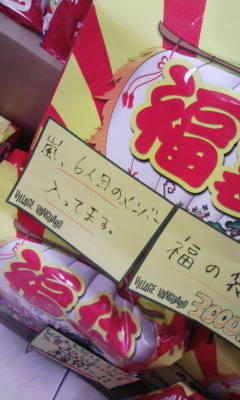 福
嵐、6人目のメンバー
入ってます。
VILLAGE VANGUARD
福の袋
VILLAGE VANGUARD
3000
福袋